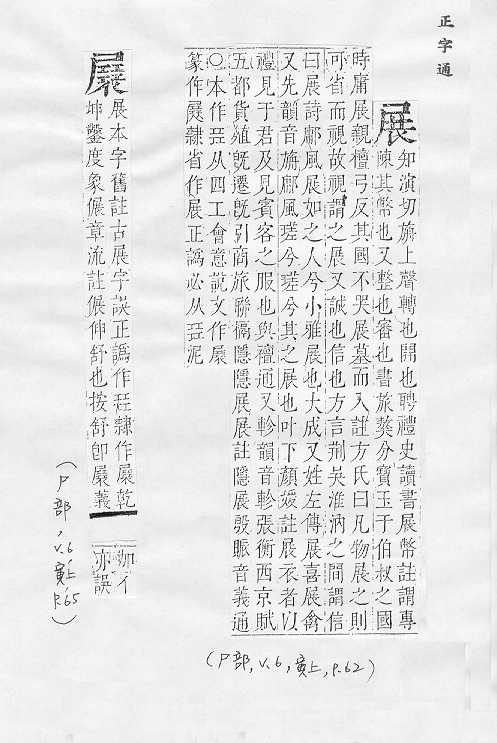 正字通
展
知演切旃上聲轉也開也聘禮史讀書展幣註謂專
陳其幣也又整也審也書旅獒分寶玉于伯叔之國
時庸展親檀弓反其國不哭展墓而入註方氏曰凡物展之則
可省而視故視謂之展又誠也信也方言荆吳淮汭之間謂信
曰展詩鄘風展如之人兮小雅展也大成又姓左傳展喜展禽
又先韻音旃鄘風瑳兮瑳兮其之展也叶下顏媛註展衣者以
禮見于君及見賓客之服也與襢通又軫韻音軫張衡西京賦
五都貨殖旣遷旣引商旅聯槅隱隱展展註隱展殷賑音義通
〇本作㠭从四工會意說文作㞡
篆作㞡隸省作展正譌必从㠭泥
(尸部,v.6,寅上,p.62)
㞡
展本字舊註古展字誤正譌作㠭隸作㞡乾
坤鑿度象㒟章流註㒟伸舒也按舒卽㞡義
加亻
亦誤
(尸部,v.6寅上p.65)